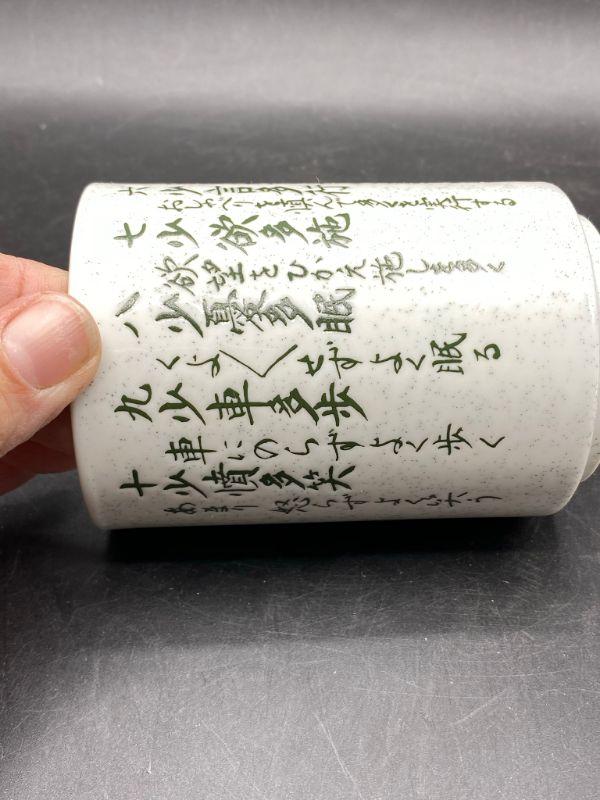 六 少言多行
おしゃべりを慎んで多くを実行する
七 少欲多施
欲望をひかえ施しを多く
八 少憂多眠
くよ〱せずよく眠る
九 少車多歩
車にのらずよく歩く
十 少憤多笑
あまり怒らずよく笑う